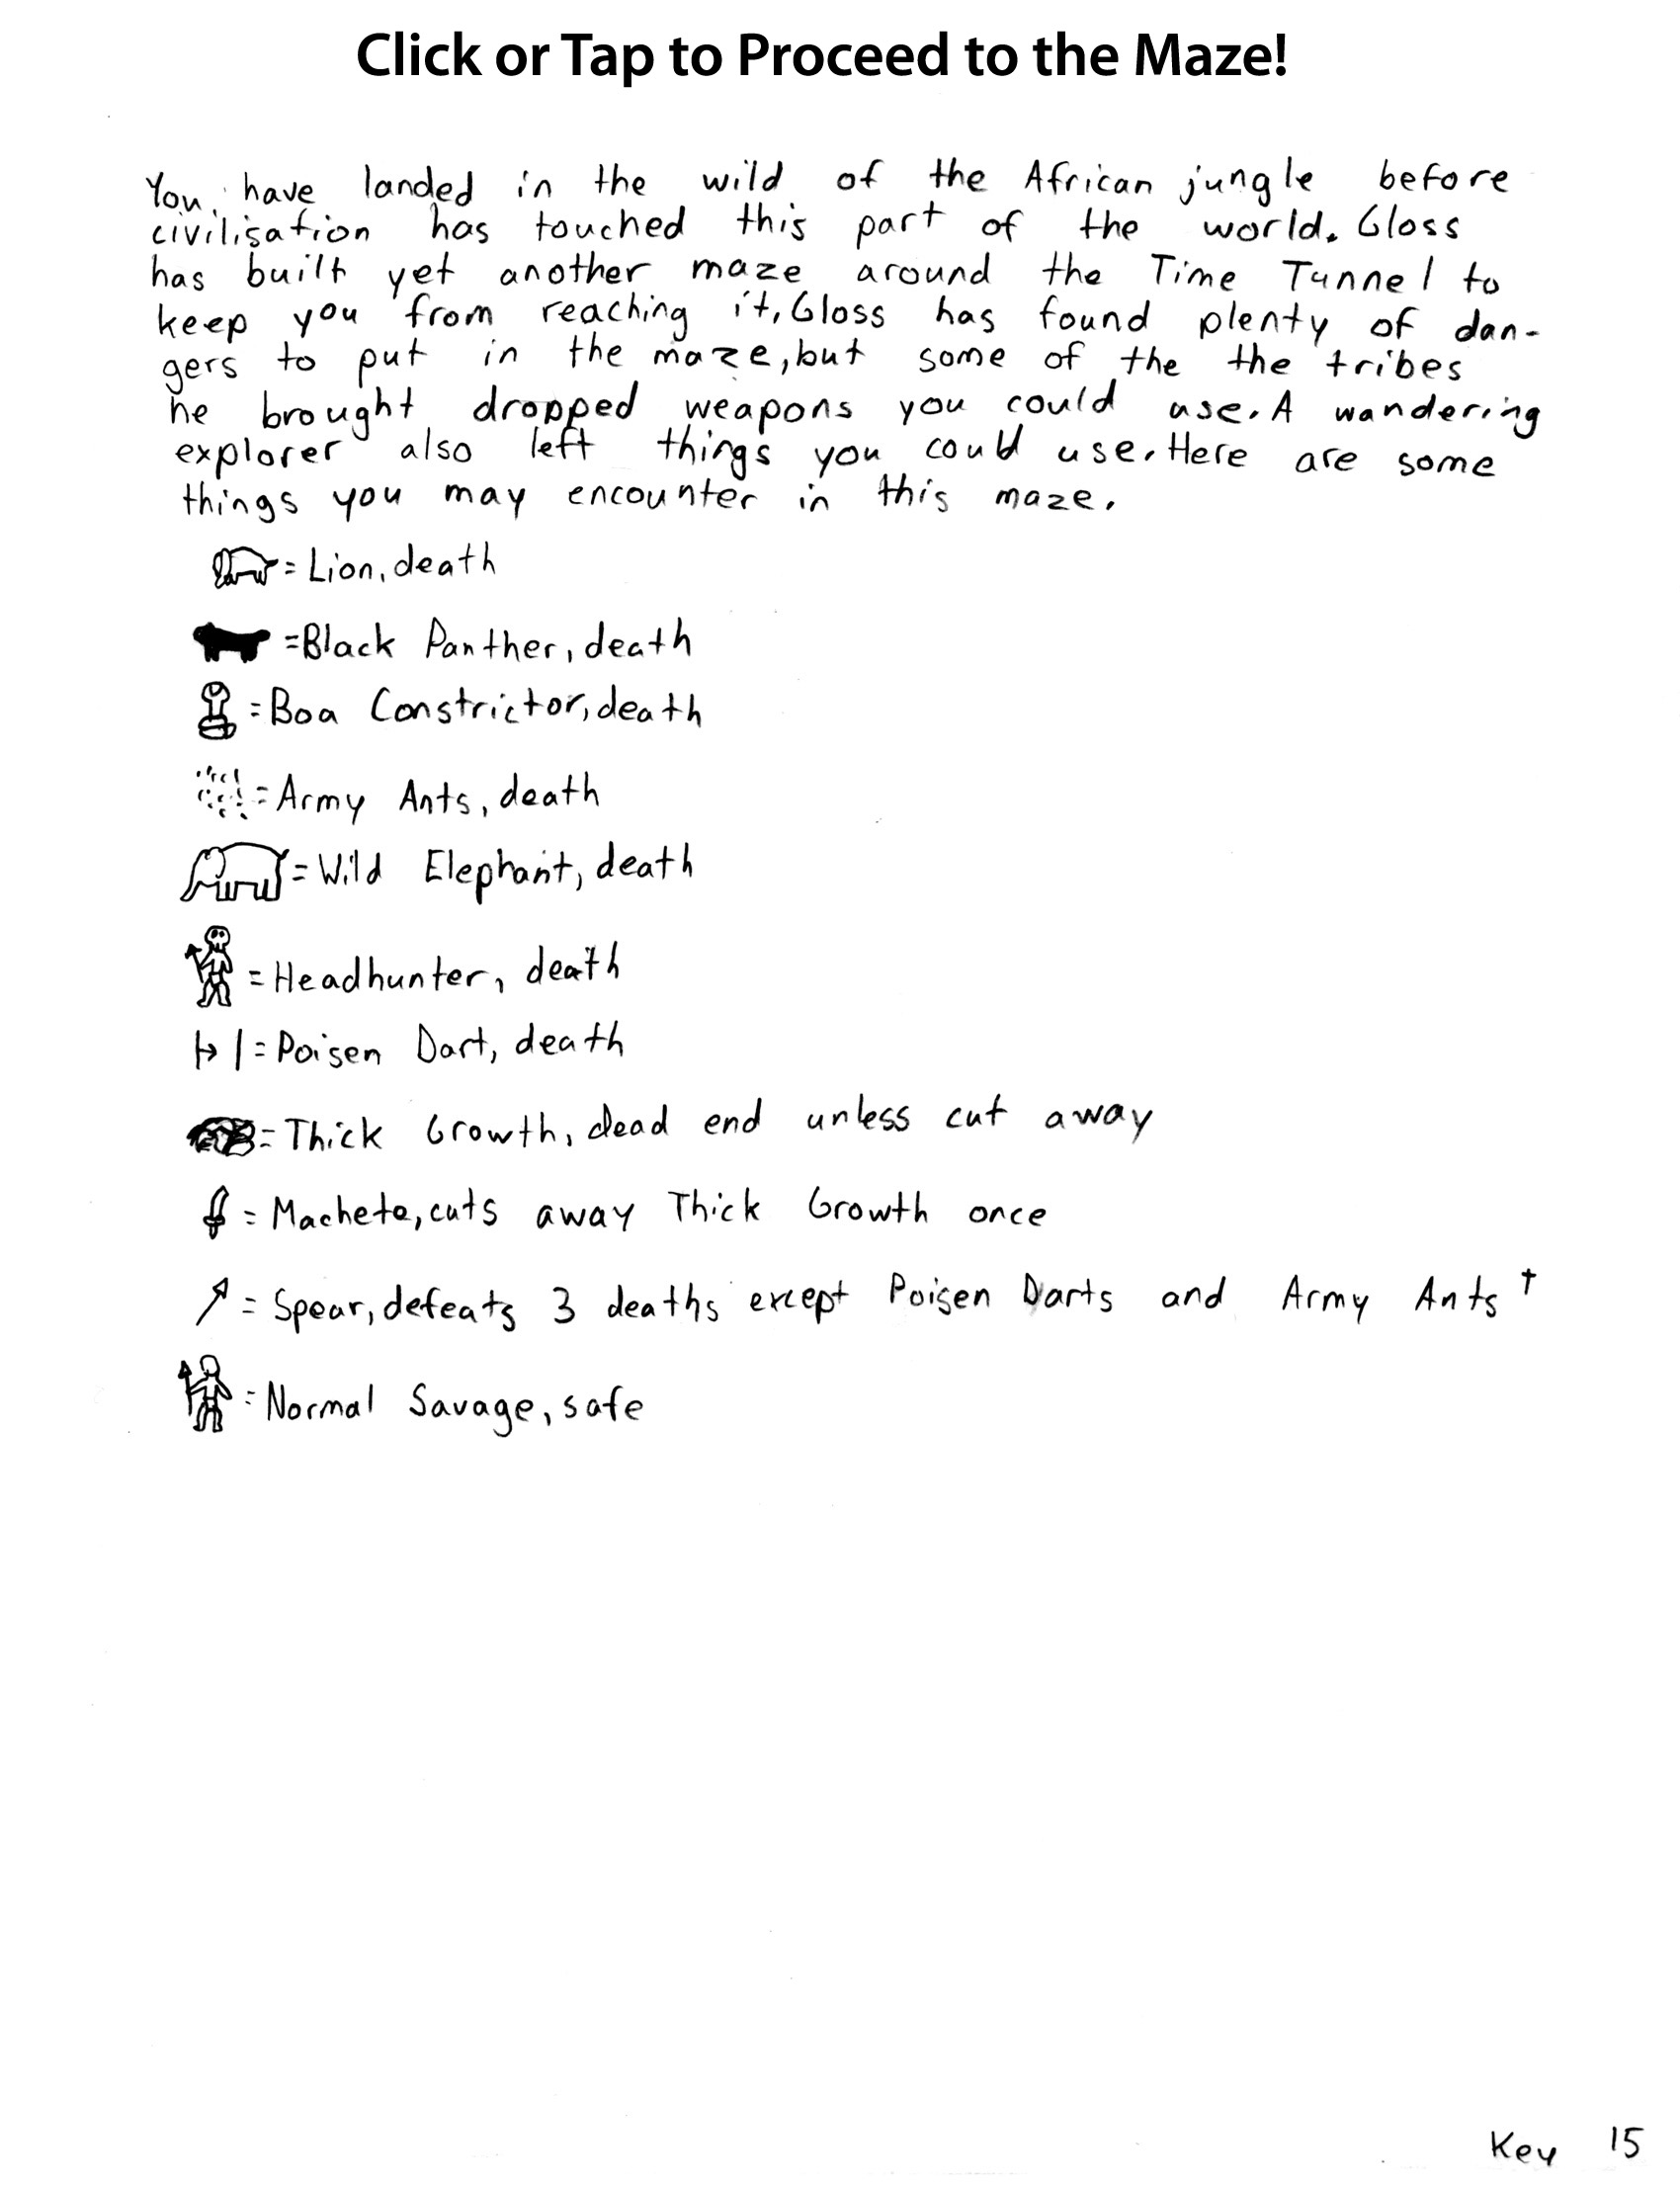 Click or Tap to Proceed to the Maze!
You have landed in the wild of the African jungle before
civilisation has touched this part of the world. Gloss
has built yet another maze around the Time Tunnel to
keep you from reaching it, Gloss has found plenty of dan-
gers to put in the maze, but some of the the tribes
he brought dropped weapons you could use. A wandering
explorer also left things you could use. Here are some
things you may encounter in this maze.
= Lion, death
=Black Panther, death
= Boa Constrictor, death
= Army Ants, death
= Wild Elephant, death
= Headhunter, death
= Poisen Dart, death
= Thick Growth, dead end unless cut away
= Machete, cuts away Thick Growth once
= Spear, defeats 3 deaths except Poisen Darts and Army Ants †
= Normal Savage, safe
Key 15